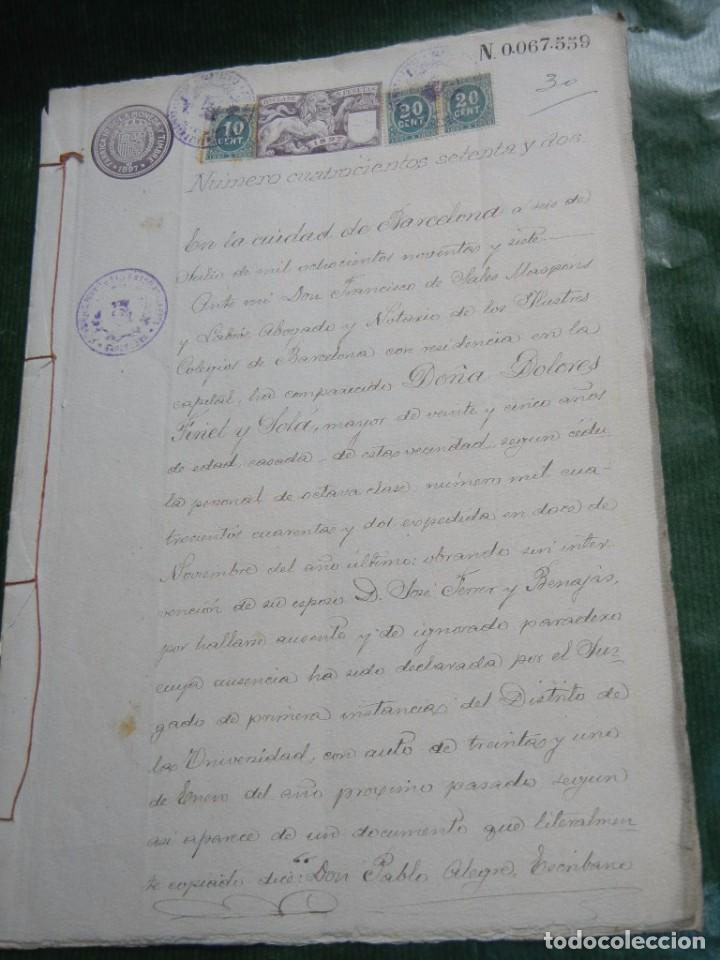 N. 0.067.559
30
10 CENT
20 CENT
20 CENT
1897
Número cuatrocientos setenta y dos.
En la cuidad de Barcelona á seis de
Julio de mil ochocientos noventa y siete
Ante mí Don Francisco de Sales Maspons
y Labrós Abogado y Notario de los Ilustres
Colegios de Barcelona con residencia en la
capital, ha comparecido Doña Dolores
y Solá, mayor de veinte y cinco años
de edad, casada, de esta vecindad, segun cédu
la personal de octava clase número mil cua
trocientos cuarenta y dos expedida en doce de
Noviembre del año último: obrando sin inter
vención de su esposo D. José Ferrer y Benajas,
por hallarse ausente y de ignorado paradero
cuya ausencia ha sido declarada por el Juz
gado de primera instancia del Distrito de
la Universidad, con auto de treinta y uno
de Enero del año proximo pasado segun
asi aparece de un documento que literalmen
te copiado dice: "Don Pablo Alegre, Escribano
todocoleccion.net